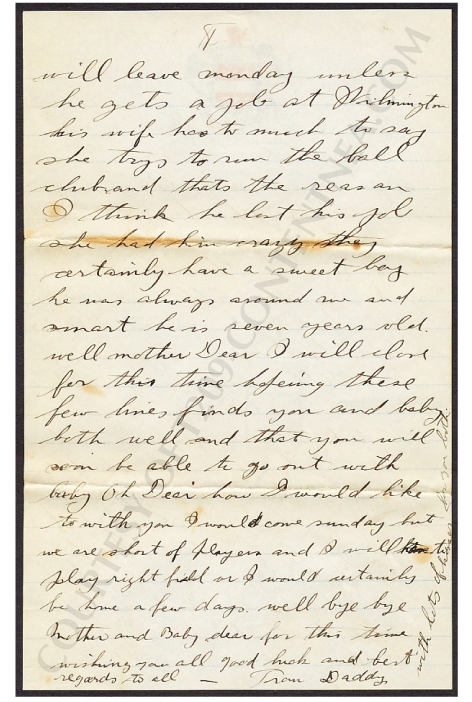 will leave monday unless
he gets a job at Wilmington
his wife has to much to say
she trys to run the ball
club and thats the reason
I think he lost his job
she had him crazy they
certainly have a sweet boy
he was always around me and
smart he is seven years old.
well mother Dear I will close
for this time hopeing these
few lines finds you and baby
both well and that you will
soon be able to go out with
baby Oh Dear how I would like
to with you I would come sunday but
we are short of players and I will have to
play right field or I would certainly
be home a few days. well bye bye
Mother and Baby dear for this time
wishing you all good luck and best
regards to all — From Daddy
with lots of kisses for you both
COURTESY OF T209-CONTENTNEA.COM